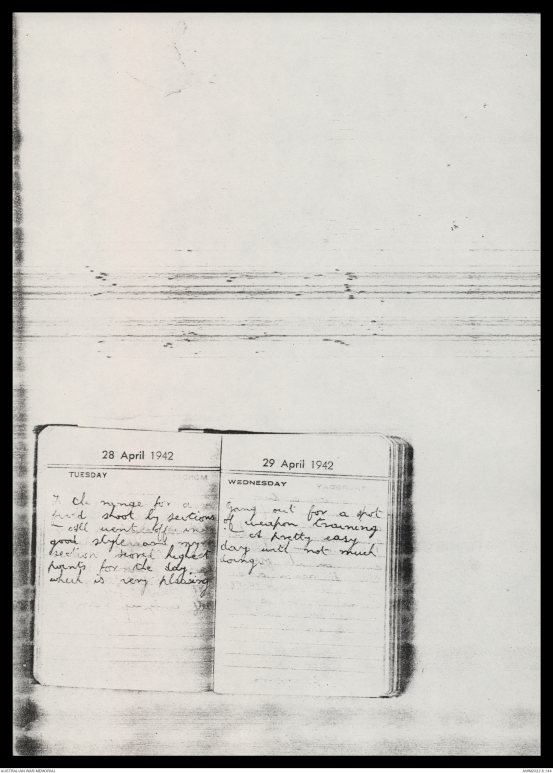 28 April 1942
TUESDAY
the range for a
shoot by sections
– All went off in
good style and my
section scored highest
points for the day
which is very pleasing
29 April 1942
WEDNESDAY
Going out for a spot
of weapon training
– A pretty easy
day with not much
doing.
AUSTRALIAN WAR MEMORIAL